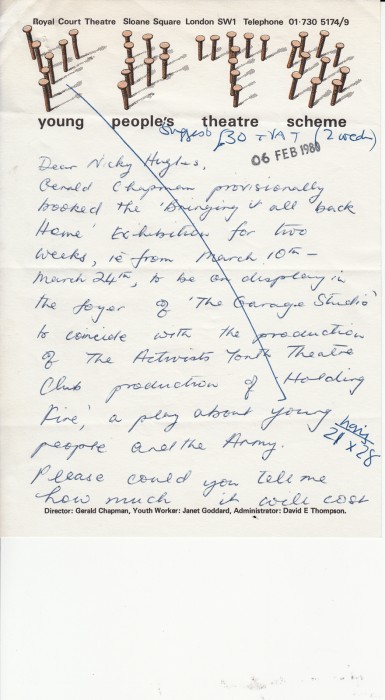 Royal Court Theatre Sloane Square London SW1 Telephone 01·730 5174/9
young people's theatre scheme
Suggest £30 + VAT (2 weeks)
06 FEB 1980
Dear Nicky Hughes,
Gerald Chapman provisionally
booked the 'Bringing it all back
Home' Exhibition for two
weeks, ie from March 10th –
March 24th, to be on display in
the foyer of 'The Garage Studio'
to coincide with the production
of The Activists Youth Theatre
Club production of 'Holding
Fire', a play about young
people and the Army.
21 x 28
Please could you tell me
how much it will cost
Director: Gerald Chapman, Youth Worker: Janet Goddard, Administrator: David E Thompson.